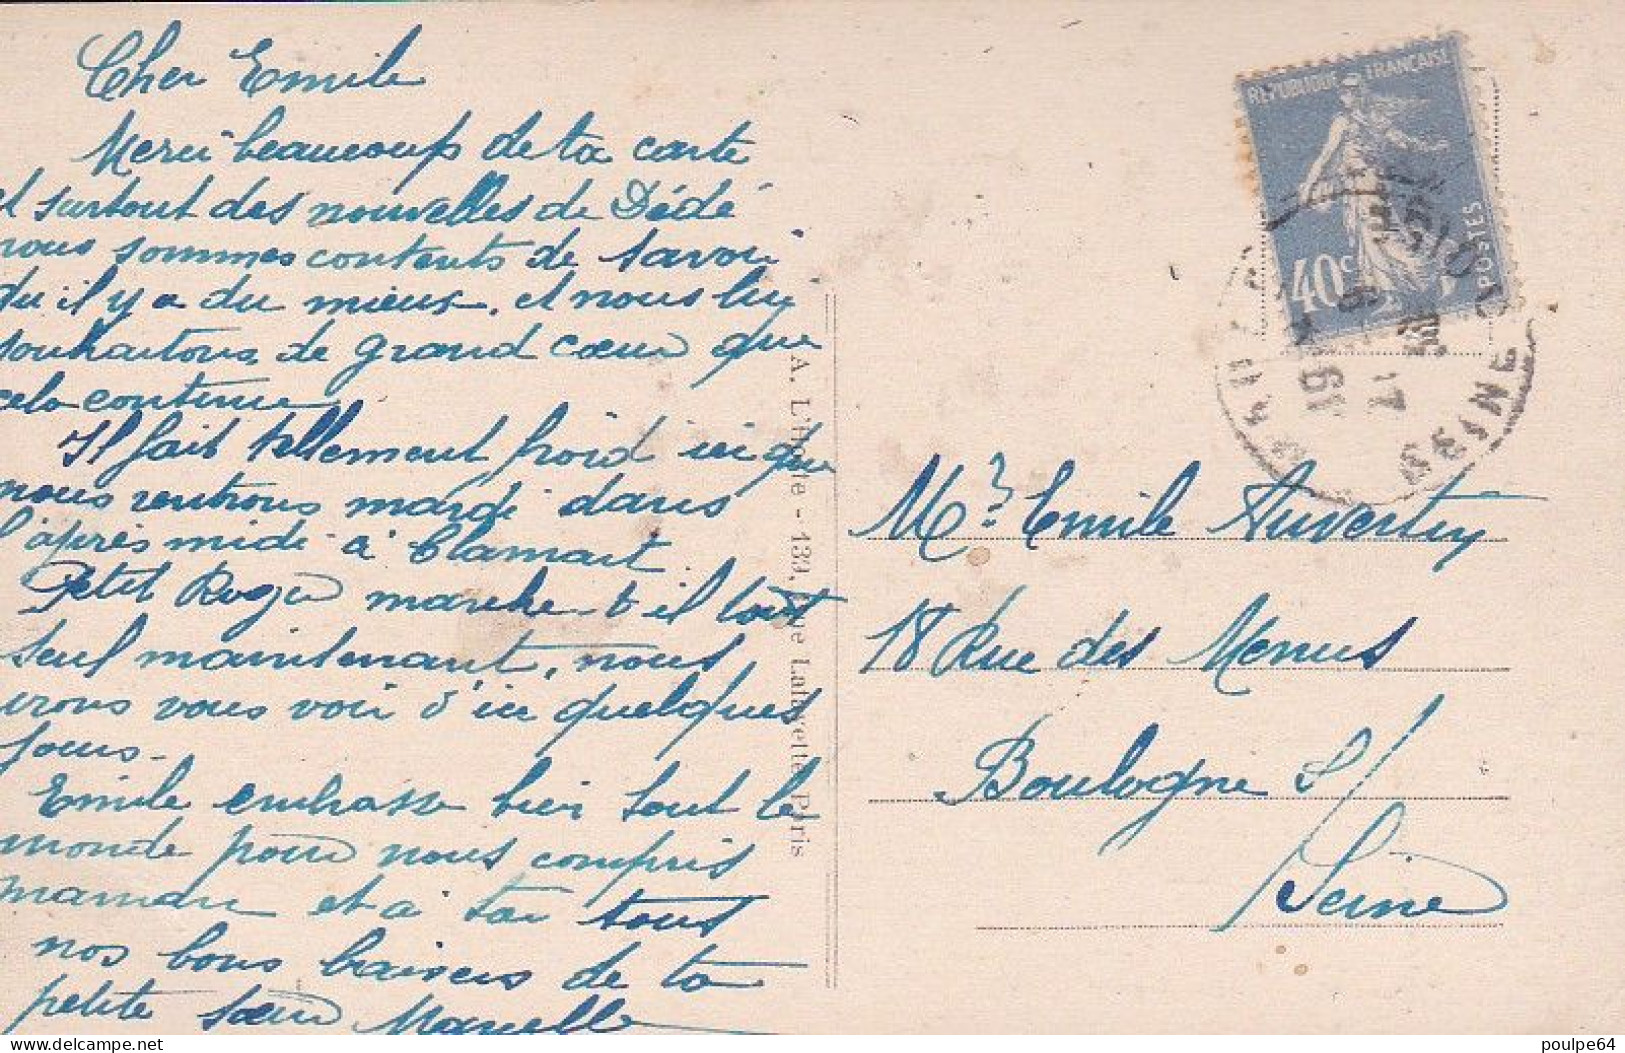 Cher Emile
Merci beaucoup de ta carte
et surtout des nouvelles de Dédé
nous sommes contents de savoir
qu'il y a du mieux. et nous lui
souhaitons de grand cœur que
cela continue
Il fait tellement froid ici que
nous rentrons mardi dans
l'après midi à Clamart.
Petit Roger marche-t-il tout
seul maintenant, nous
irons vous voir d'ici quelques
jours.
Emile embrasse bien tout le
monde pour nous compris
maman et à toi tous
nos bons baisers de ta
petite sœur Marcelle
A. L'Hoste - 139, Rue Lafayette, Paris
REPUBLIQUE FRANÇAISE
40c
POSTES
SEINE
Mr. Emile Auvertin
18 Rue des Menus
Boulogne s/
Seine
www.delcampe.net
poulpe64